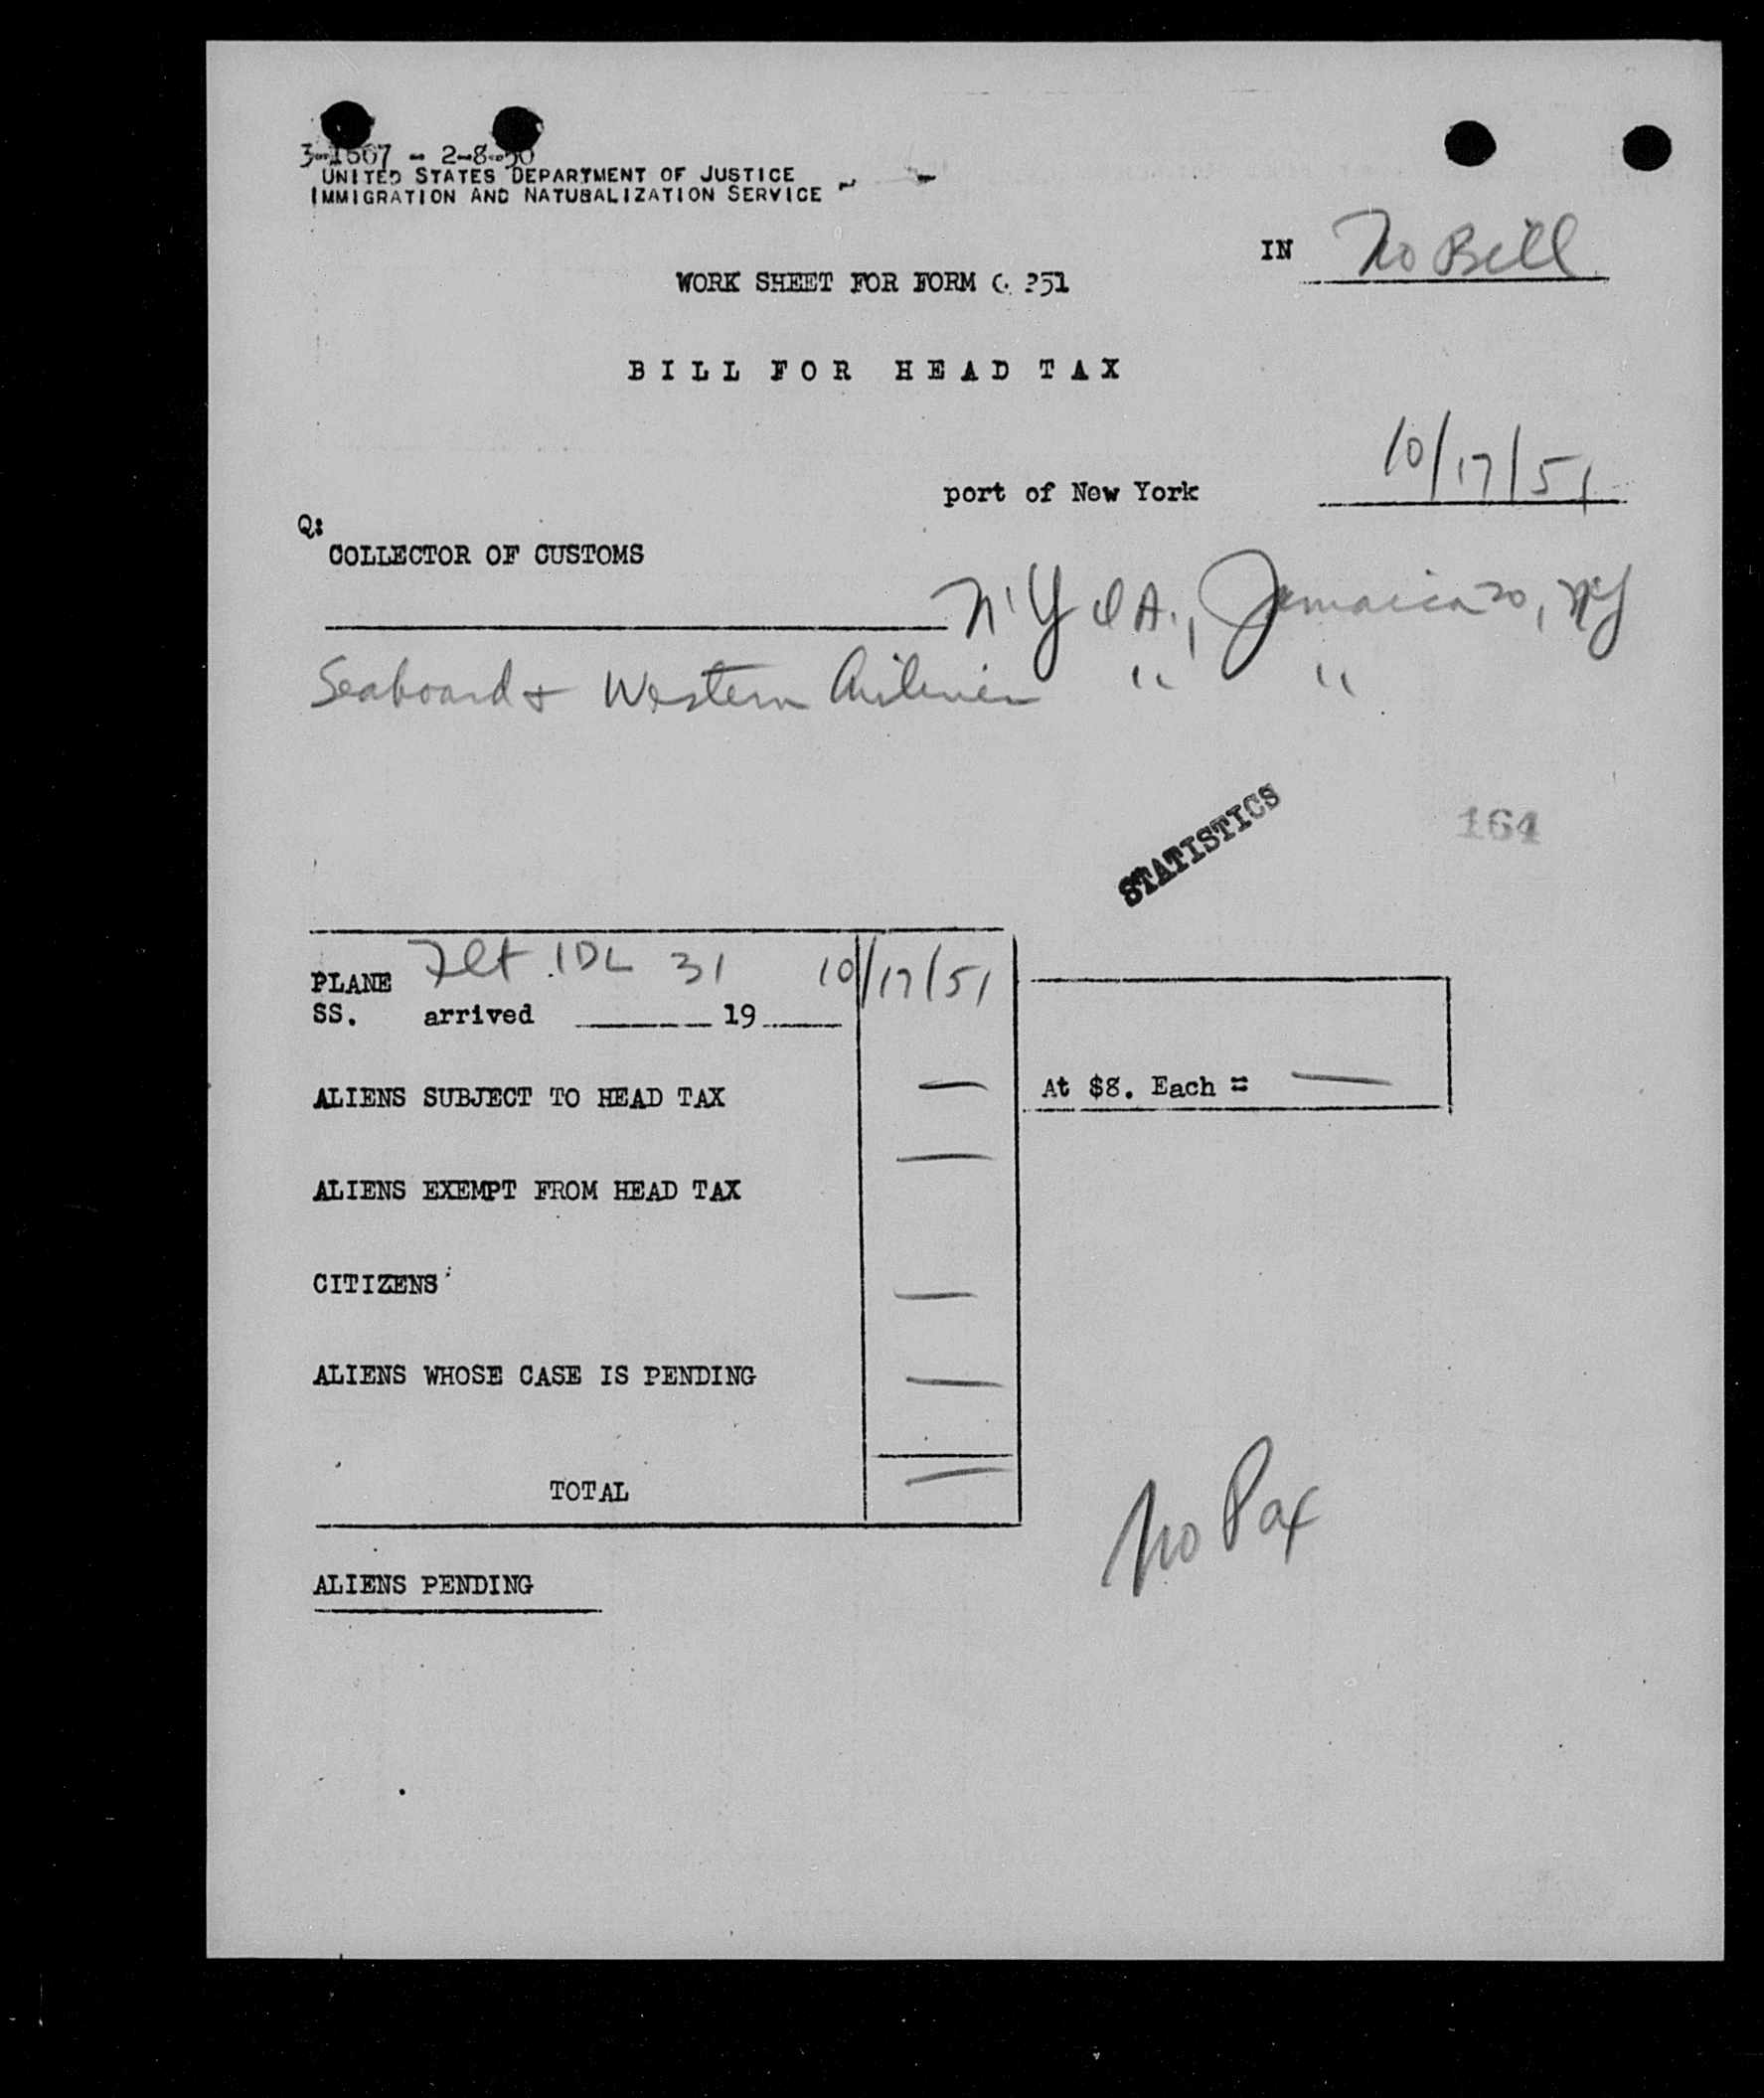 3-1567 - 2-8-50
UNITED STATES DEPARTMENT OF JUSTICE
IMMIGRATION AND NATURALIZATION SERVICE
IN No Bill
WORK SHEET FOR FORM 351
BILL FOR HEAD TAX
port of New York 10/17/51
Q:
COLLECTOR OF CUSTOMS
N.Y.I.A., Jamaica 20, NY
Seaboard & Western Airlines " "
STATISTICS
164
PLANE Flt IDL 31 10/17/51
SS. arrived 19
ALIENS SUBJECT TO HEAD TAX — At $8. Each = —
ALIENS EXEMPT FROM HEAD TAX —
CITIZENS —
ALIENS WHOSE CASE IS PENDING —
TOTAL —
No Pax
ALIENS PENDING